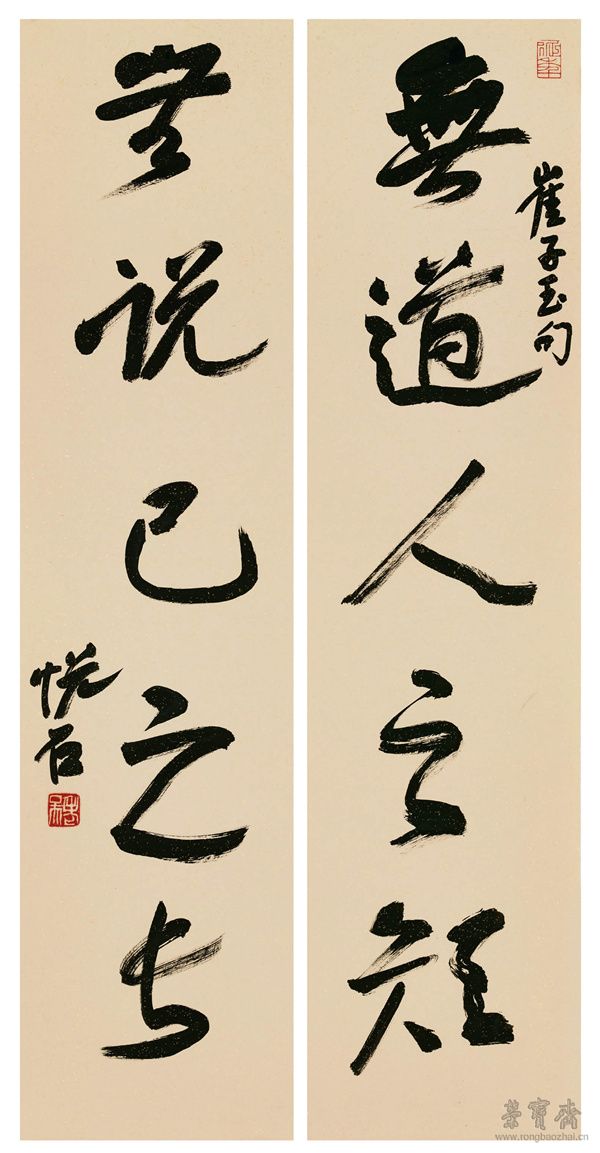 崔子玉句
無道人之短
無说己之长
悦石
荣宝斋
www.rongbaozhai.cn